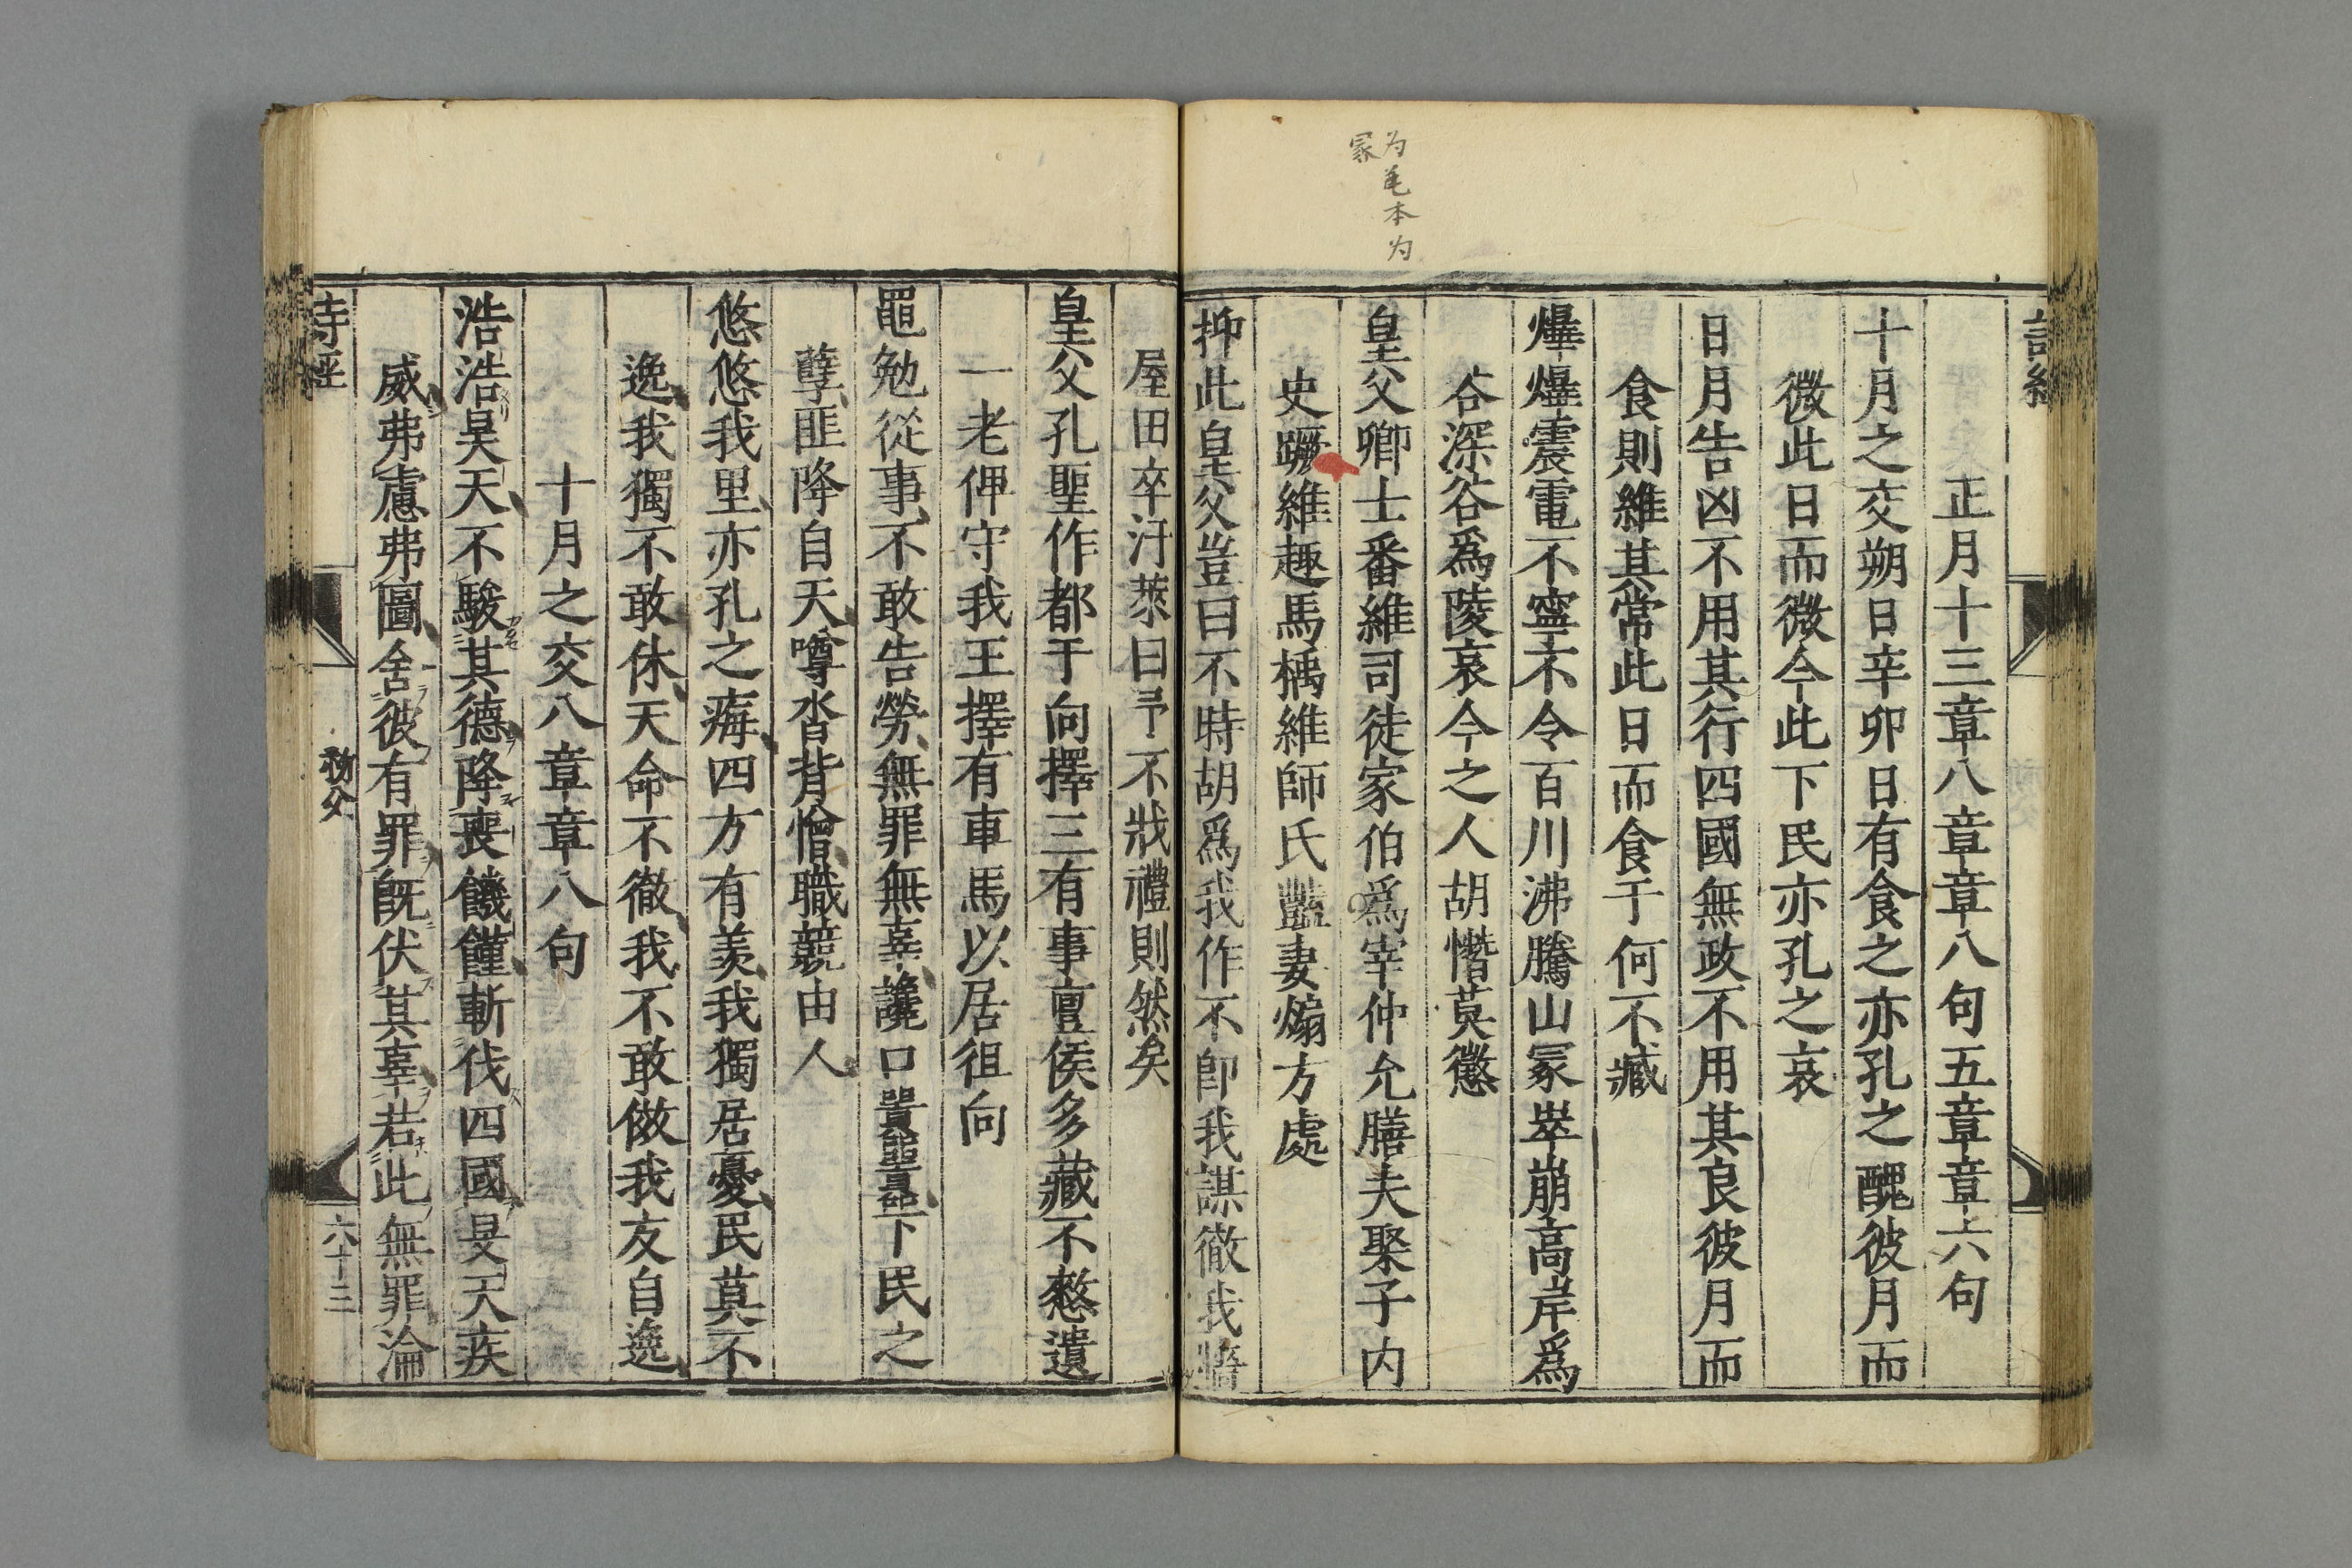 为毛本为
冢
正月十三章八章章八句五章章六句
十月之交朔日辛卯日有食之亦孔之醜彼月而
微此日而微今此下民亦孔之哀
日月告凶不用其行四國無政不用其良彼月而
食則維其常此日而食于何不臧
爗爗震電不寧不令百川沸騰山冢崒崩高岸爲
谷深谷爲陵哀今之人胡憯莫懲
皇父卿士番維司徒家伯爲宰仲允膳夫棸子内
史蹶維趣馬楀維師氏豔妻煽方處
抑此皇父豈曰不時胡爲我作不卽我謀徹我牆
屋田卒汙萊曰予不戕禮則然矣
皇父孔聖作都于向擇三有事亶侯多藏不憖遺
一老俾守我王擇有車馬以居徂向
黽勉從事不敢告勞無罪無辜讒口囂囂下民之
孽匪降自天噂沓背憎職競由人
悠悠我里亦孔之痗四方有羨我獨居憂民莫不
逸我獨不敢休天命不徹我不敢傚我友自逸
十月之交八章章八句
浩浩昊天不駿其德降喪饑饉斬伐四國旻天疾
威弗慮弗圖舍彼有罪旣伏其辜若此無罪淪
詩經
六十三